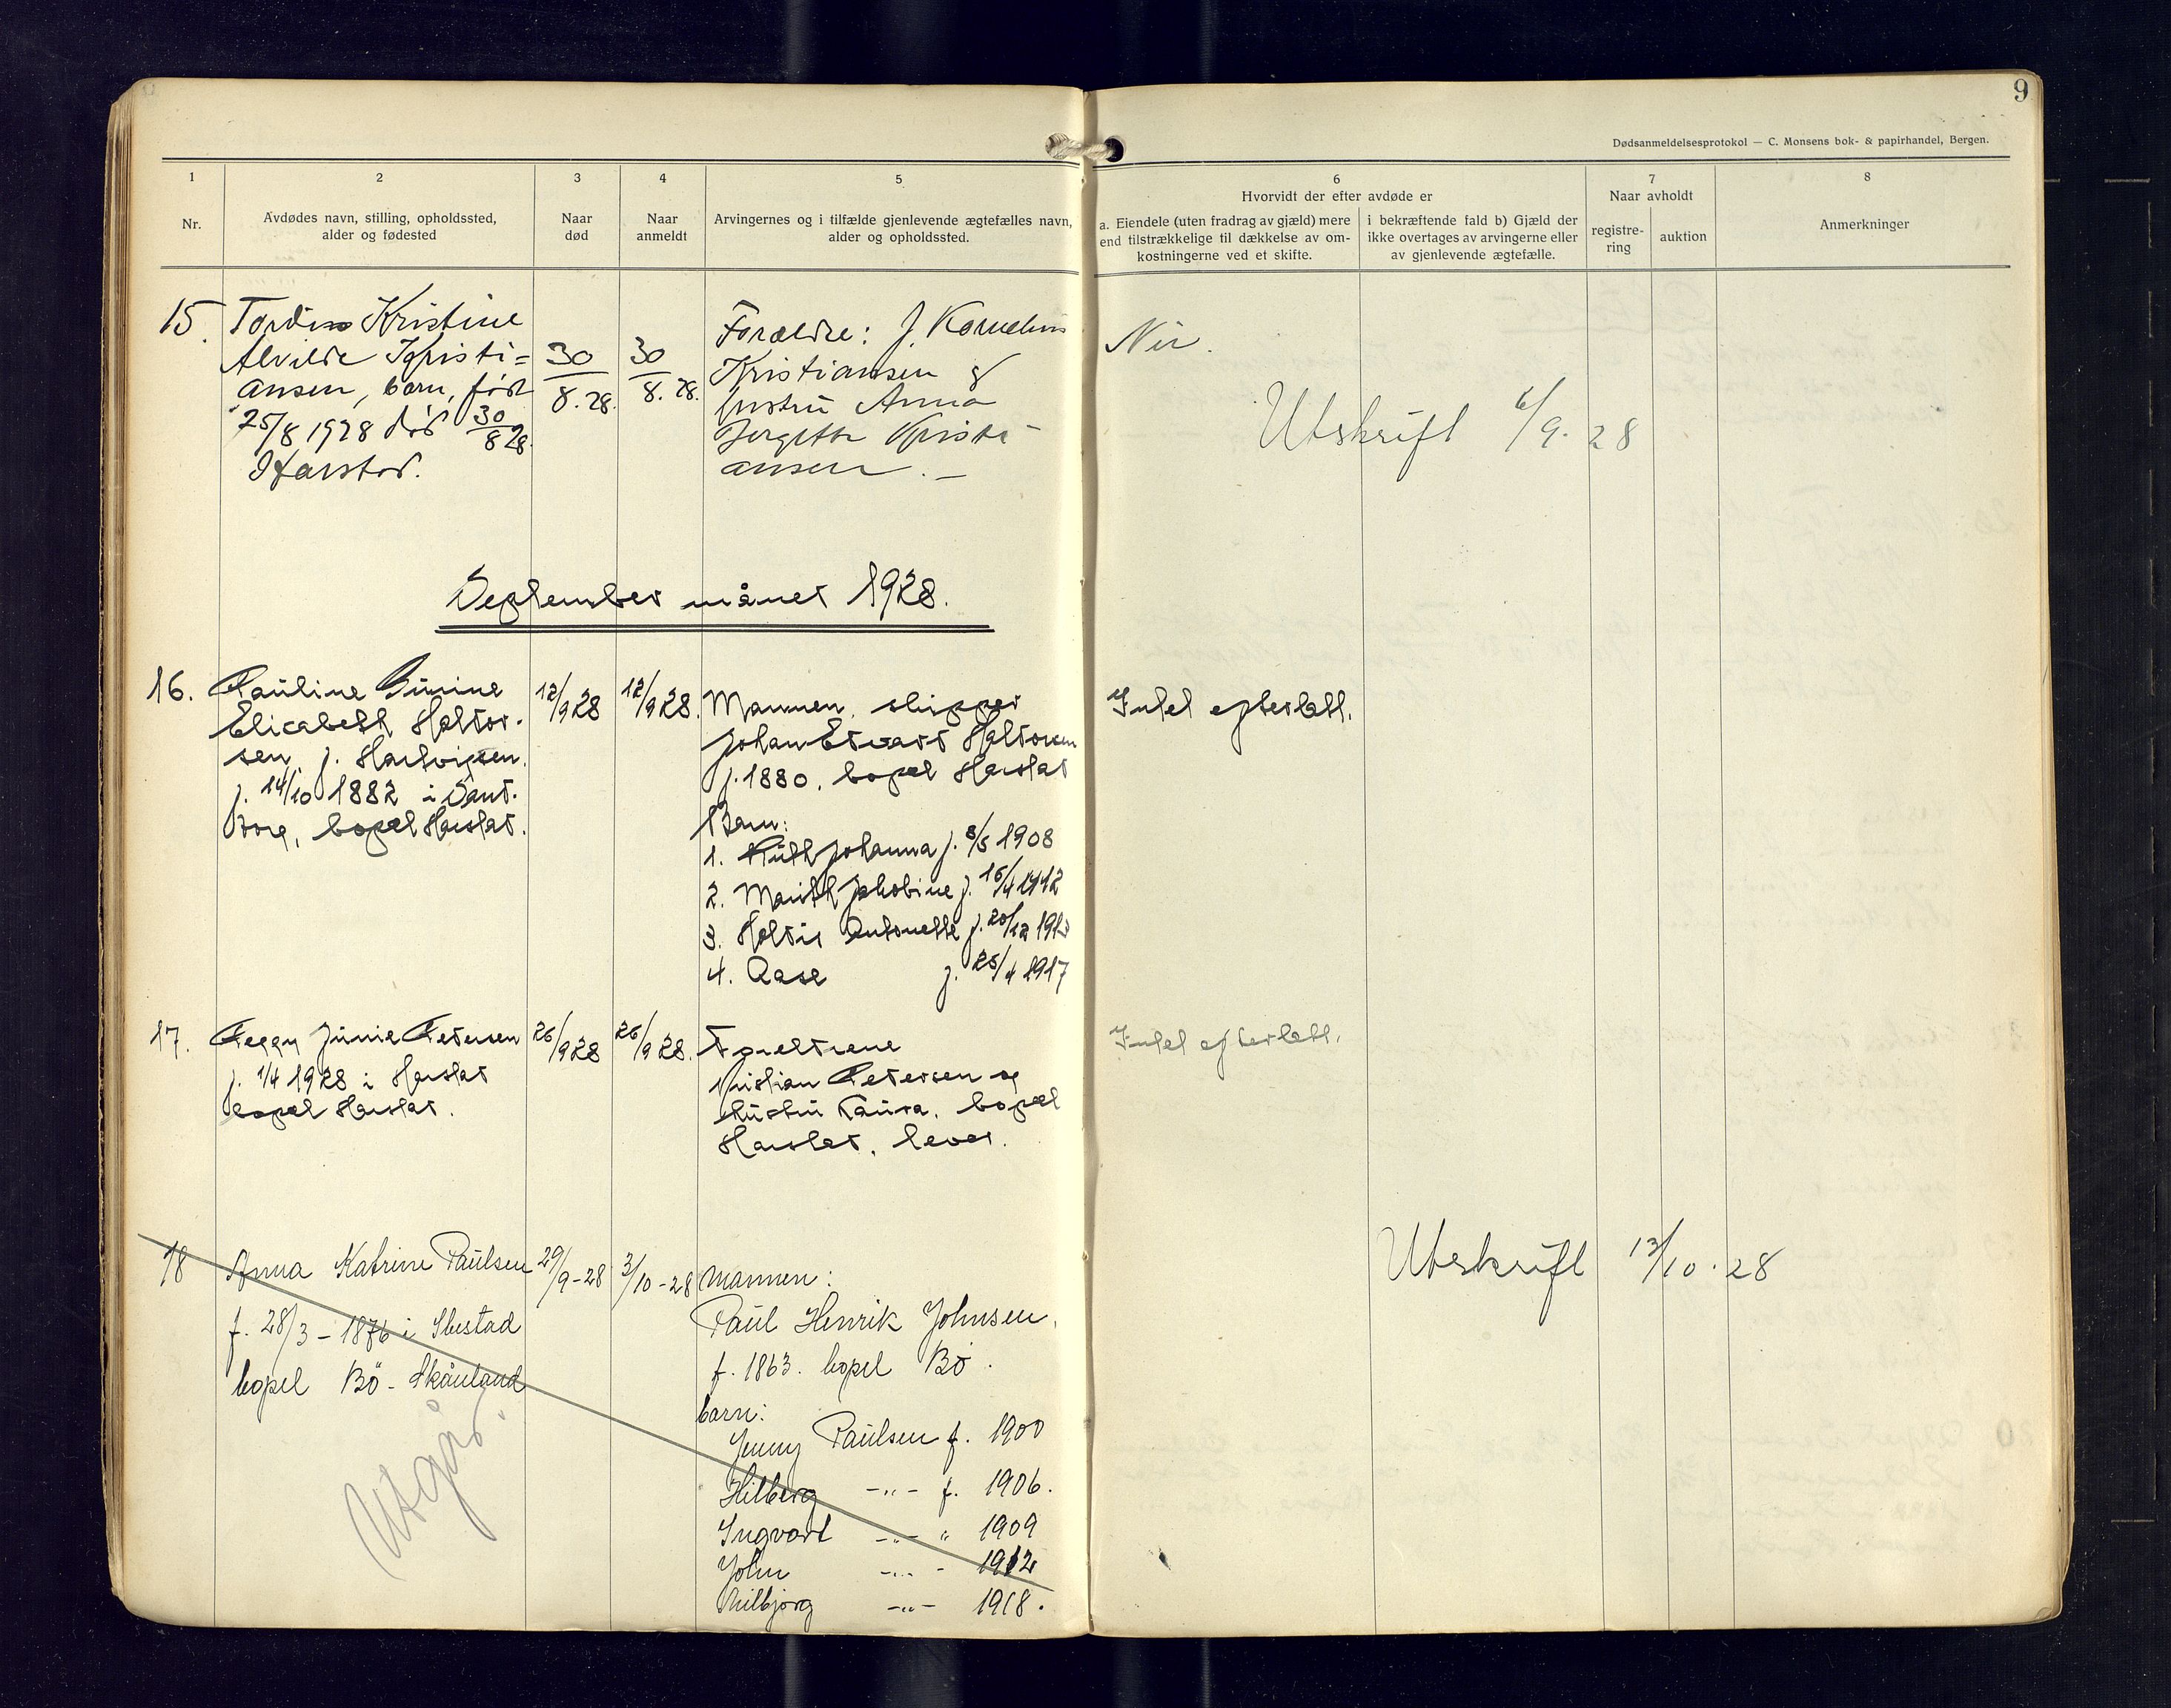 9
Dødsanmeldelsesprotokol — C. Monsens bok- & papirhandel, Bergen.
1
Nr.
2
Avdødes navn, stilling, opholdssted,
alder og fødested
3
Naar
død
4
Naar
anmeldt
5
Arvingernes og i tilfælde gjenlevende ægtefælles navn,
alder og opholdssted.
6
Hvorvidt der efter avdøde er
a. Eiendele (uten fradrag av gjæld) mere
end tilstrækkelige til dækkelse av om-
kostningerne ved et skifte.
i bekræftende fald b) Gjæld der
ikke overtages av arvingerne eller
av gjenlevende ægtefælle.
7
Naar avholdt
registre-
ring
auktion
8
Anmerkninger
15.
Tordis Kristine
Alvilde Kristi=
ansen, barn, født
25/8 1928 død 30/8 28.
Harstad.
30/8. 28.
30/8. 28.
Forældre: J. Kornelius
Kristiansen &
hustru Anna
Kristi-
ansen. —
Nei.
Utskrift 6/9. 28
September månet 1928.
16.
Pauline
Elisabeth Haldor-
sen, f. Hartvigsen.
f. 14/10 1882 i Sand-
torg, bopæl Harstad.
12/9 28
12/9 28.
Mannen, skipper
Johan Edvard Haldorsen
f. 1880, bopæl Harstad
Barn:
1. Ruth Johanna f. 8/5 1908
2. Marith Jakobine f. 15/4 1912
3. Haldis Antonette f. 20/12
4. Aase f. 25/4 1917
Intet efterlatt.
17.
Peggy Junie Petersen
f. 1/4 1928 i Harstad
bopæl Harstad.
26/9 28
26/9 28.
Foreldrene
Kristian Petersen og
hustru Laura, bopæl
Harstad, lever.
Intet efterlatt.
18
Anna Katrine Paulsen
f. 28/3 - 1876 i Ibestad
bopel Bö - Skånland
29/9 - 28
3/10 - 28
Mannen:
Paul Henrik Johnsen,
f. 1863. bopel Bö.
barn:
Jenny Paulsen f. 1900
Hilberg -"- f. 1906.
Ingvart -"- " 1909
John -"- - 1912
-"- 1918.
Utskrift 13/10. 28
Utgår.